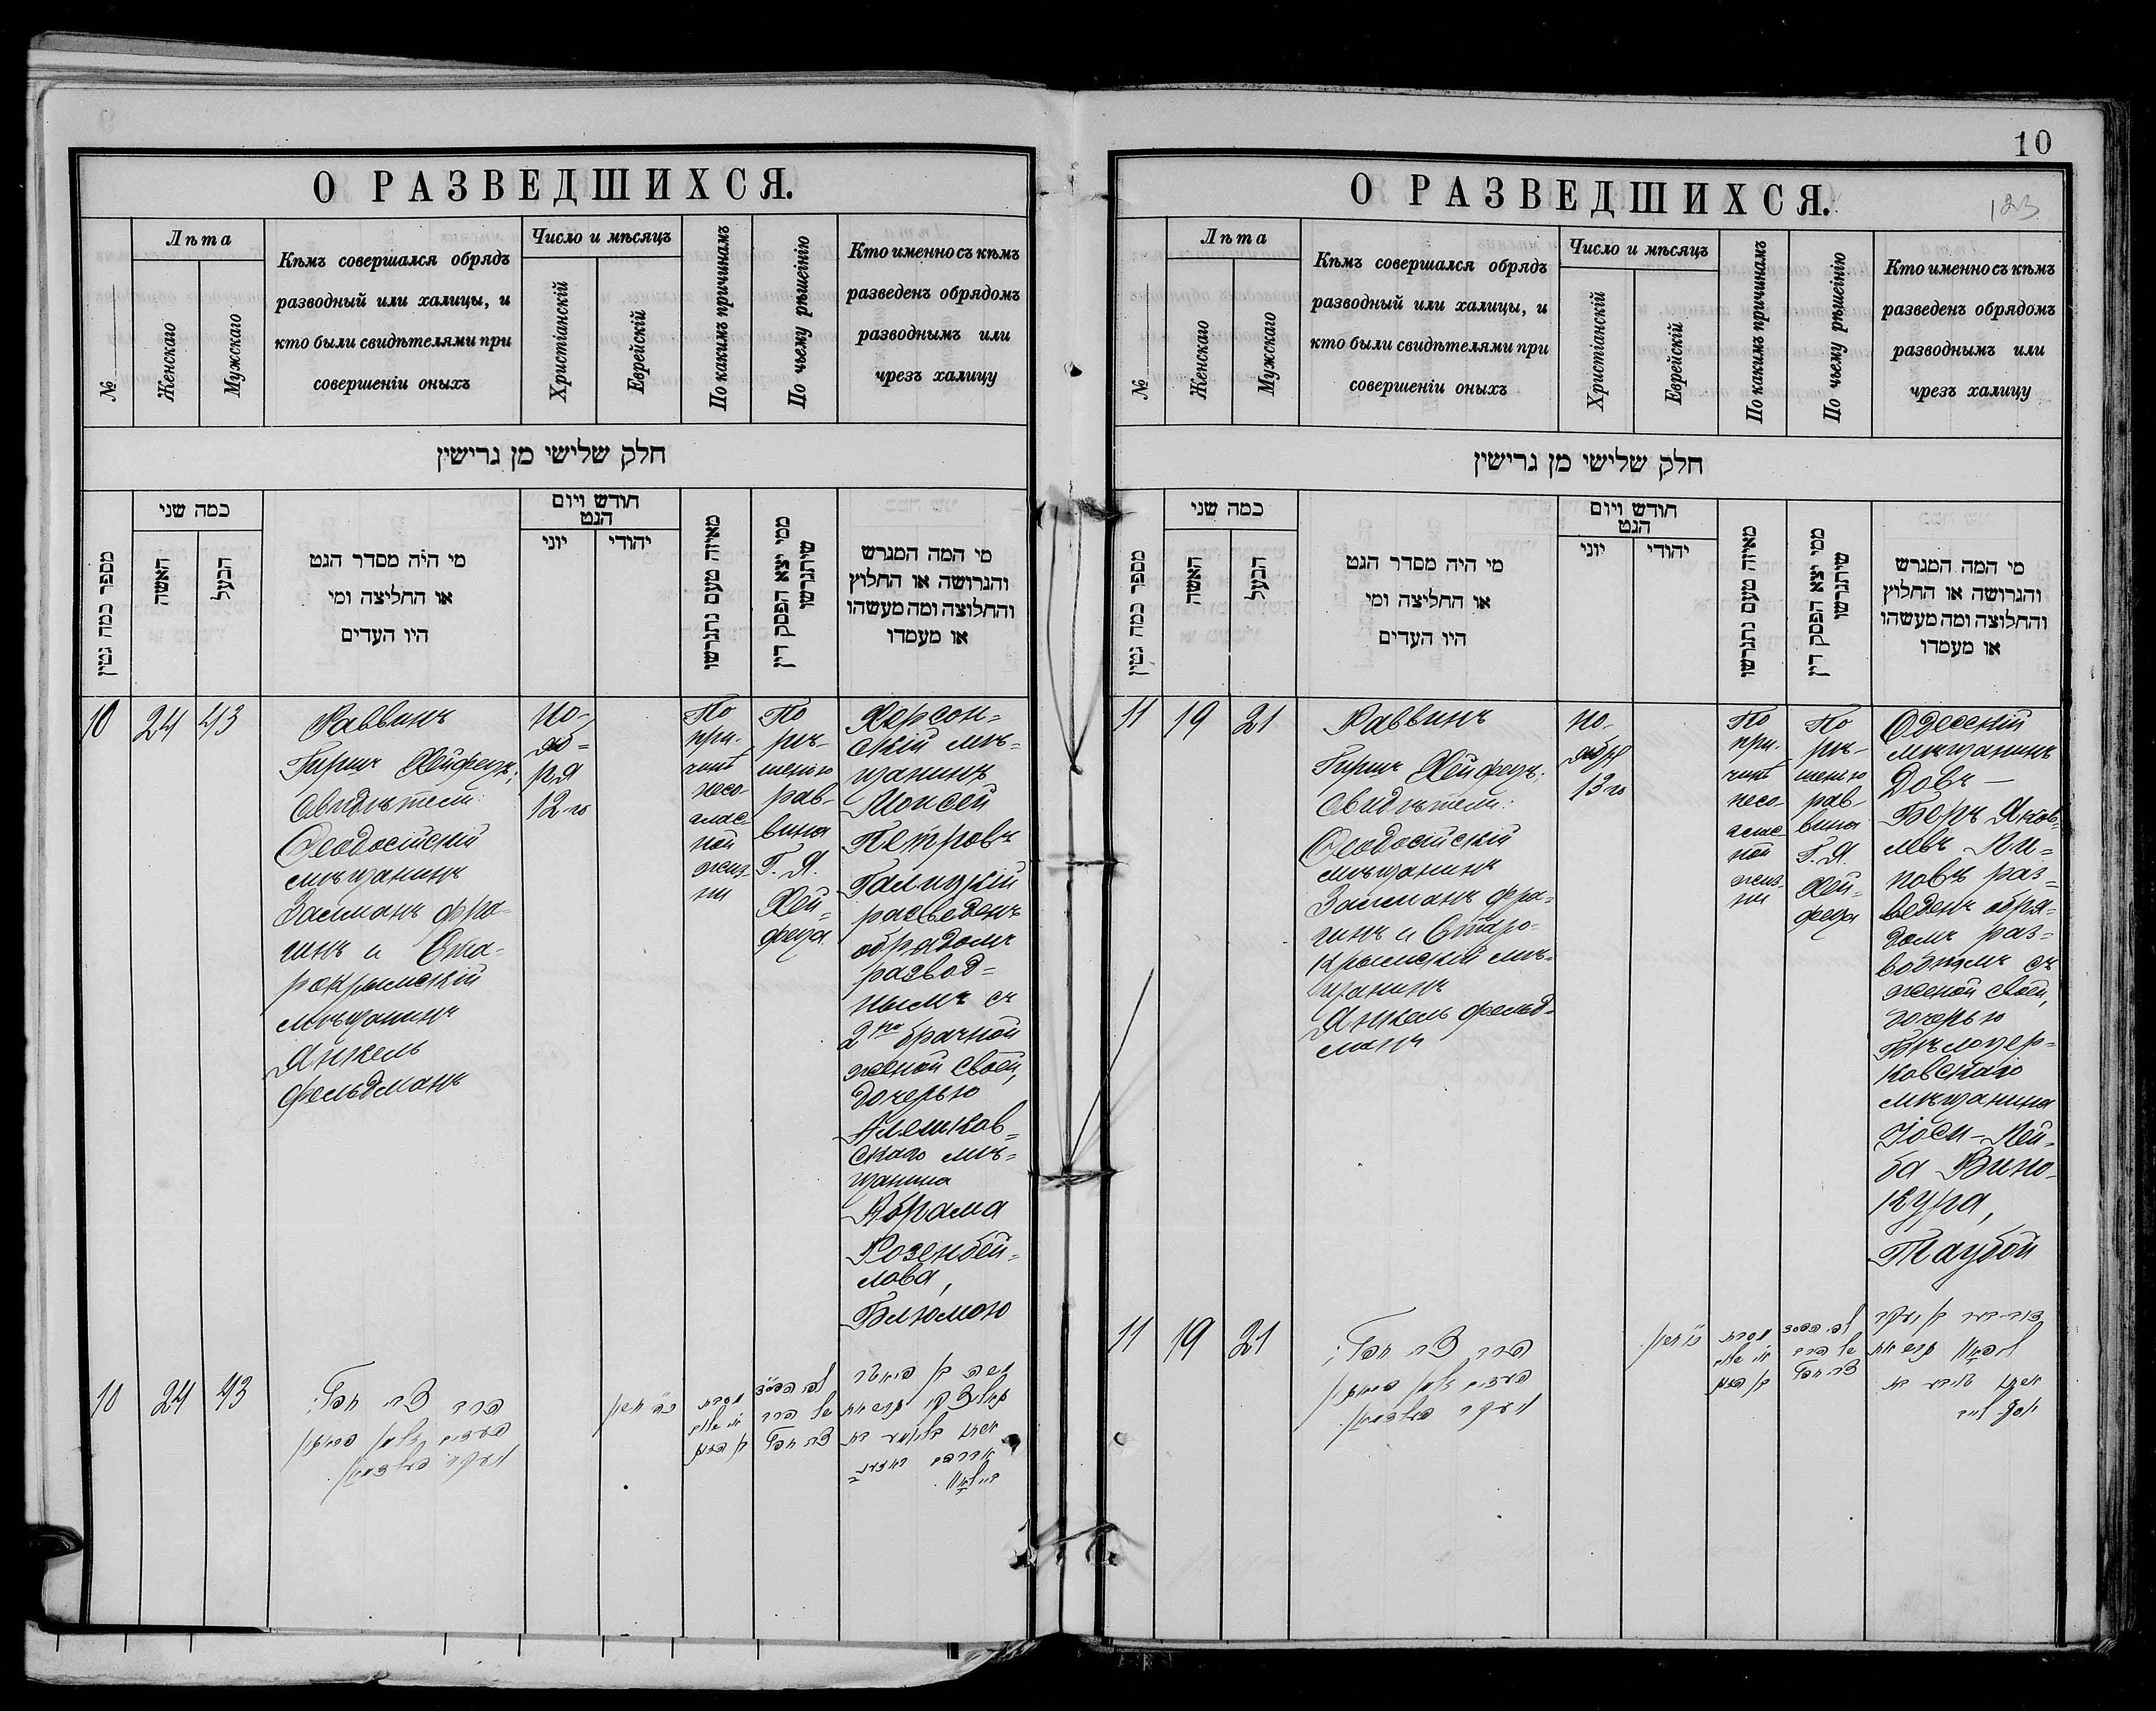 О РАЗВЕДШИХСЯ.
№
Лѣта
Женскаго
Мужскаго
Кѣмъ совершался обрядъ
разводный или халицы, и
кто были свидѣтелями при
совершеніи оныхъ
Число и мѣсяцъ
Христіанскій
Еврейскій
По какимъ причинамъ
По чьему рѣшенію
Кто именно съ кѣмъ
разведенъ обрядомъ
разводнымъ или
чрезъ халицу
חלק שלישי מן גרישין
מספר כמה גטין
כמה שני
האשה
הבעל
מי היה מסדר הגט
או החליצה ומי
היו העדים
חודש ויום
הגט
יוני
יהודי
מאיזה טעם נתגרשו
ממי יצא הפסק דין
שיתגרשו
מי המה המגרש
והגרושה או החלוץ
והחלוצה ומה מעשהו
או מעמדו
10
24
43
Раввинъ
Гиршъ Хейфецъ;
Свидѣтели:
Ѳеодосійскій
мѣщанинъ
Залманъ Фра-
гинъ и Ста-
рокрымскій
мѣщанинъ
Янкель
Фельдманъ
Но-
яб=
ря
12-го
По
при-
чинѣ
несо-
глас-
ной
жиз-
ни
По
рѣ-
шенію
рав-
вина
Г. Я.
Хей-
феца
Херсон=
скій мѣ-
щанинъ
Моисей
Петровъ
Галицкій
разведенъ
обрядомъ
развод=
нымъ съ
2но брачной
женой своей,
дочерью
Алешков=
скаго мѣ=
щанина
Абрама
Розенбей-
лова,
Блюмою
10
24
43
10
О РАЗВЕДШИХСЯ.
123
№
Лѣта
Женскаго
Мужскаго
Кѣмъ совершался обрядъ
разводный или халицы, и
кто были свидѣтелями при
совершеніи оныхъ
Число и мѣсяцъ
Христіанскій
Еврейскій
По какимъ причинамъ
По чьему рѣшенію
Кто именно съ кѣмъ
разведенъ обрядомъ
разводнымъ или
чрезъ халицу
חלק שלישי מן גרישין
מספר כמה גטין
כמה שני
האשה
הבעל
מי היה מסדר הגט
או החליצה ומי
היו העדים
חודש ויום
הגט
יוני
יהודי
מאיזה טעם נתגרשו
ממי יצא הפסק דין
שיתגרשו
מי המה המגרש
והגרושה או החלוץ
והחלוצה ומה מעשהו
או מעמדו
11
19
21
Раввинъ
Гиршъ Хейфецъ;
Свидѣтели:
Ѳеодосійскій
мѣщанинъ
Залманъ Фра-
гинъ и Старо-
Крымскій мѣ-
щанинъ
Янкель Фельд-
манъ
Но-
ября
13го
По
при-
чинѣ
несо-
глас-
ной
жиз-
ни
По
рѣ-
шенію
рав-
вина
Г. Я.
Хей-
феца
Одесскій
мѣщанинъ
Довъ-
Беръ Яков-
левъ
разведенъ обря-
домъ раз-
воднымъ съ
женой своей,
дочерью
Бѣлоцер-
ковскаго
мѣщанина
Іось-Лей-
ба Вино-
кура,
Таубой
11
19
21